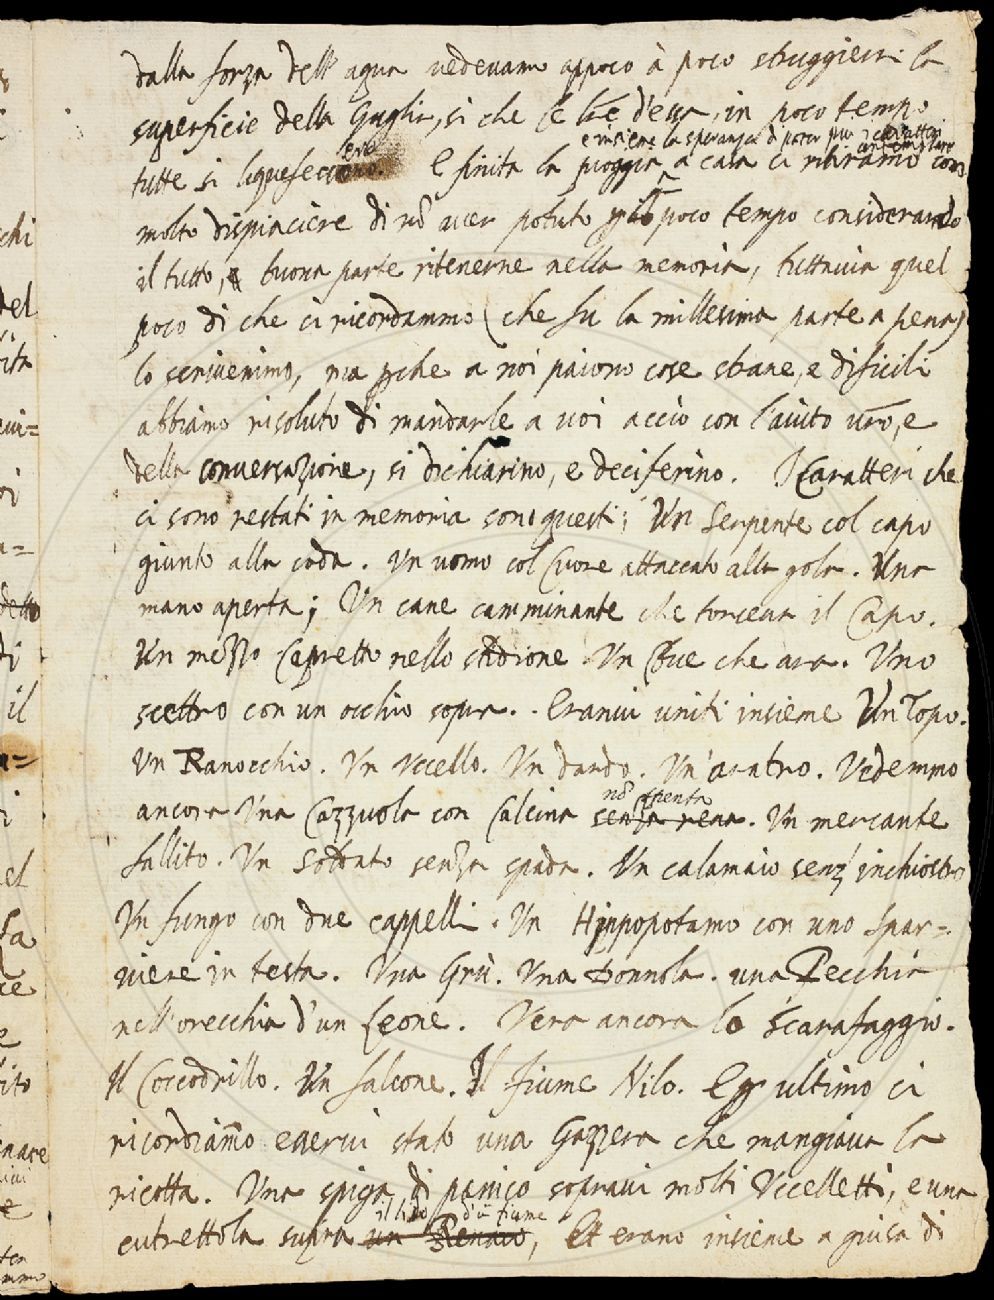 dalla forza dell' aqua vedevamo appoco à poco struggiersi la
superficie della Guglia, si che le lre d'essa, in poco tempo
e insieme la speranza di poter più i caratteri
contemplare
tutte si liquefecero. E finita la pioggia a casa ci ritiramo con
molto dispiacere di nõ aver potuto in poco tempo considerando
il tutto, e buona parte ritenerne nella memoria, tuttavia quel
poco di che ci ricordammo (che fu la millesima parte a pena)
lo scrivemmo, ma pche a noi paiono cose strane, e dificili
abbiamo risoluto di mandarle a voi acciò con l'aiuto vro, e
della conversazione, si dichiarino, e deciferino. I Caratteri che
ci sono restati in memoria sono questi; Un Serpente col capo
giunto alla coda. Un uomo col Cuore attaccato alla gola. Una
mano aperta; Un cane camminante che torceva il Capo.
Un mezzo Capretto nello stidione Un Bue che ara. Uno
scettro con un occhio sopra. Eranvi uniti insieme Un Topo.
Un Ranocchio. Un Uccello. Un dardo. Un'aratro. Vedemmo
nõ spenta
ancora Una Cazzuola con Calcina senza rena. Un mercante
fallito. Un Soldato senza spada. Un calamaio senz' inchiostro
Un fungo con due cappelli. Un Hippopotamo con uno spar=
viere in testa. Una Grù. Una Donnola. una Pecchia
nell'orecchia d'un Leone. Vera ancora lo Scarafaggio.
Il Coccodrillo. Un falcone. Il fiume Nilo. E p ultimo ci
ricordiamo esservi stato una Gazzera che mangiava la
ricotta. Una spiga di panico sopravi molti Uccelletti, e una
il lido d'ũ fiume
cutrettola supra un Renaio, Et erano insieme a guisa di